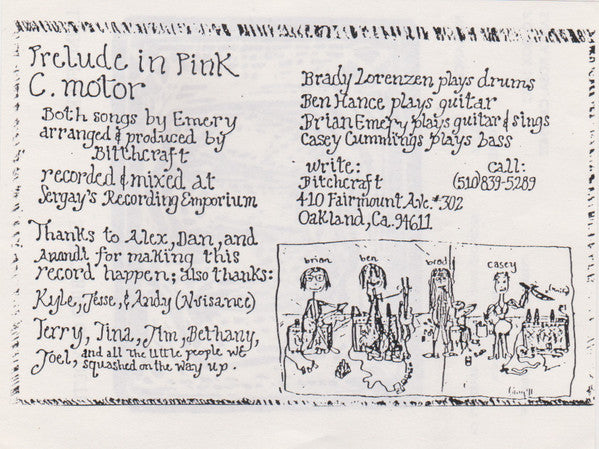 Prelude in Pink
C. motor
Both songs by Emery
arranged & produced by
Bitchcraft
recorded & mixed at
Sergay's Recording Emporium
Thanks to Alex, Dan, and
for making this
record happen; also thanks:
Kyle, Jesse, & Andy (Nuisance)
Terry, Tina, Jim, Bethany,
Joel, and all the little people we
squashed on the way up.
Brady Lorenzen plays drums
Ben Hance plays guitar
Brian Emery plays guitar & sings
Casey Cummings plays bass
write:
Bitchcraft
410 Fairmount Ave. #302
Oakland, Ca. 94611
call:
(510)839-5289
brian
ben
brad
casey